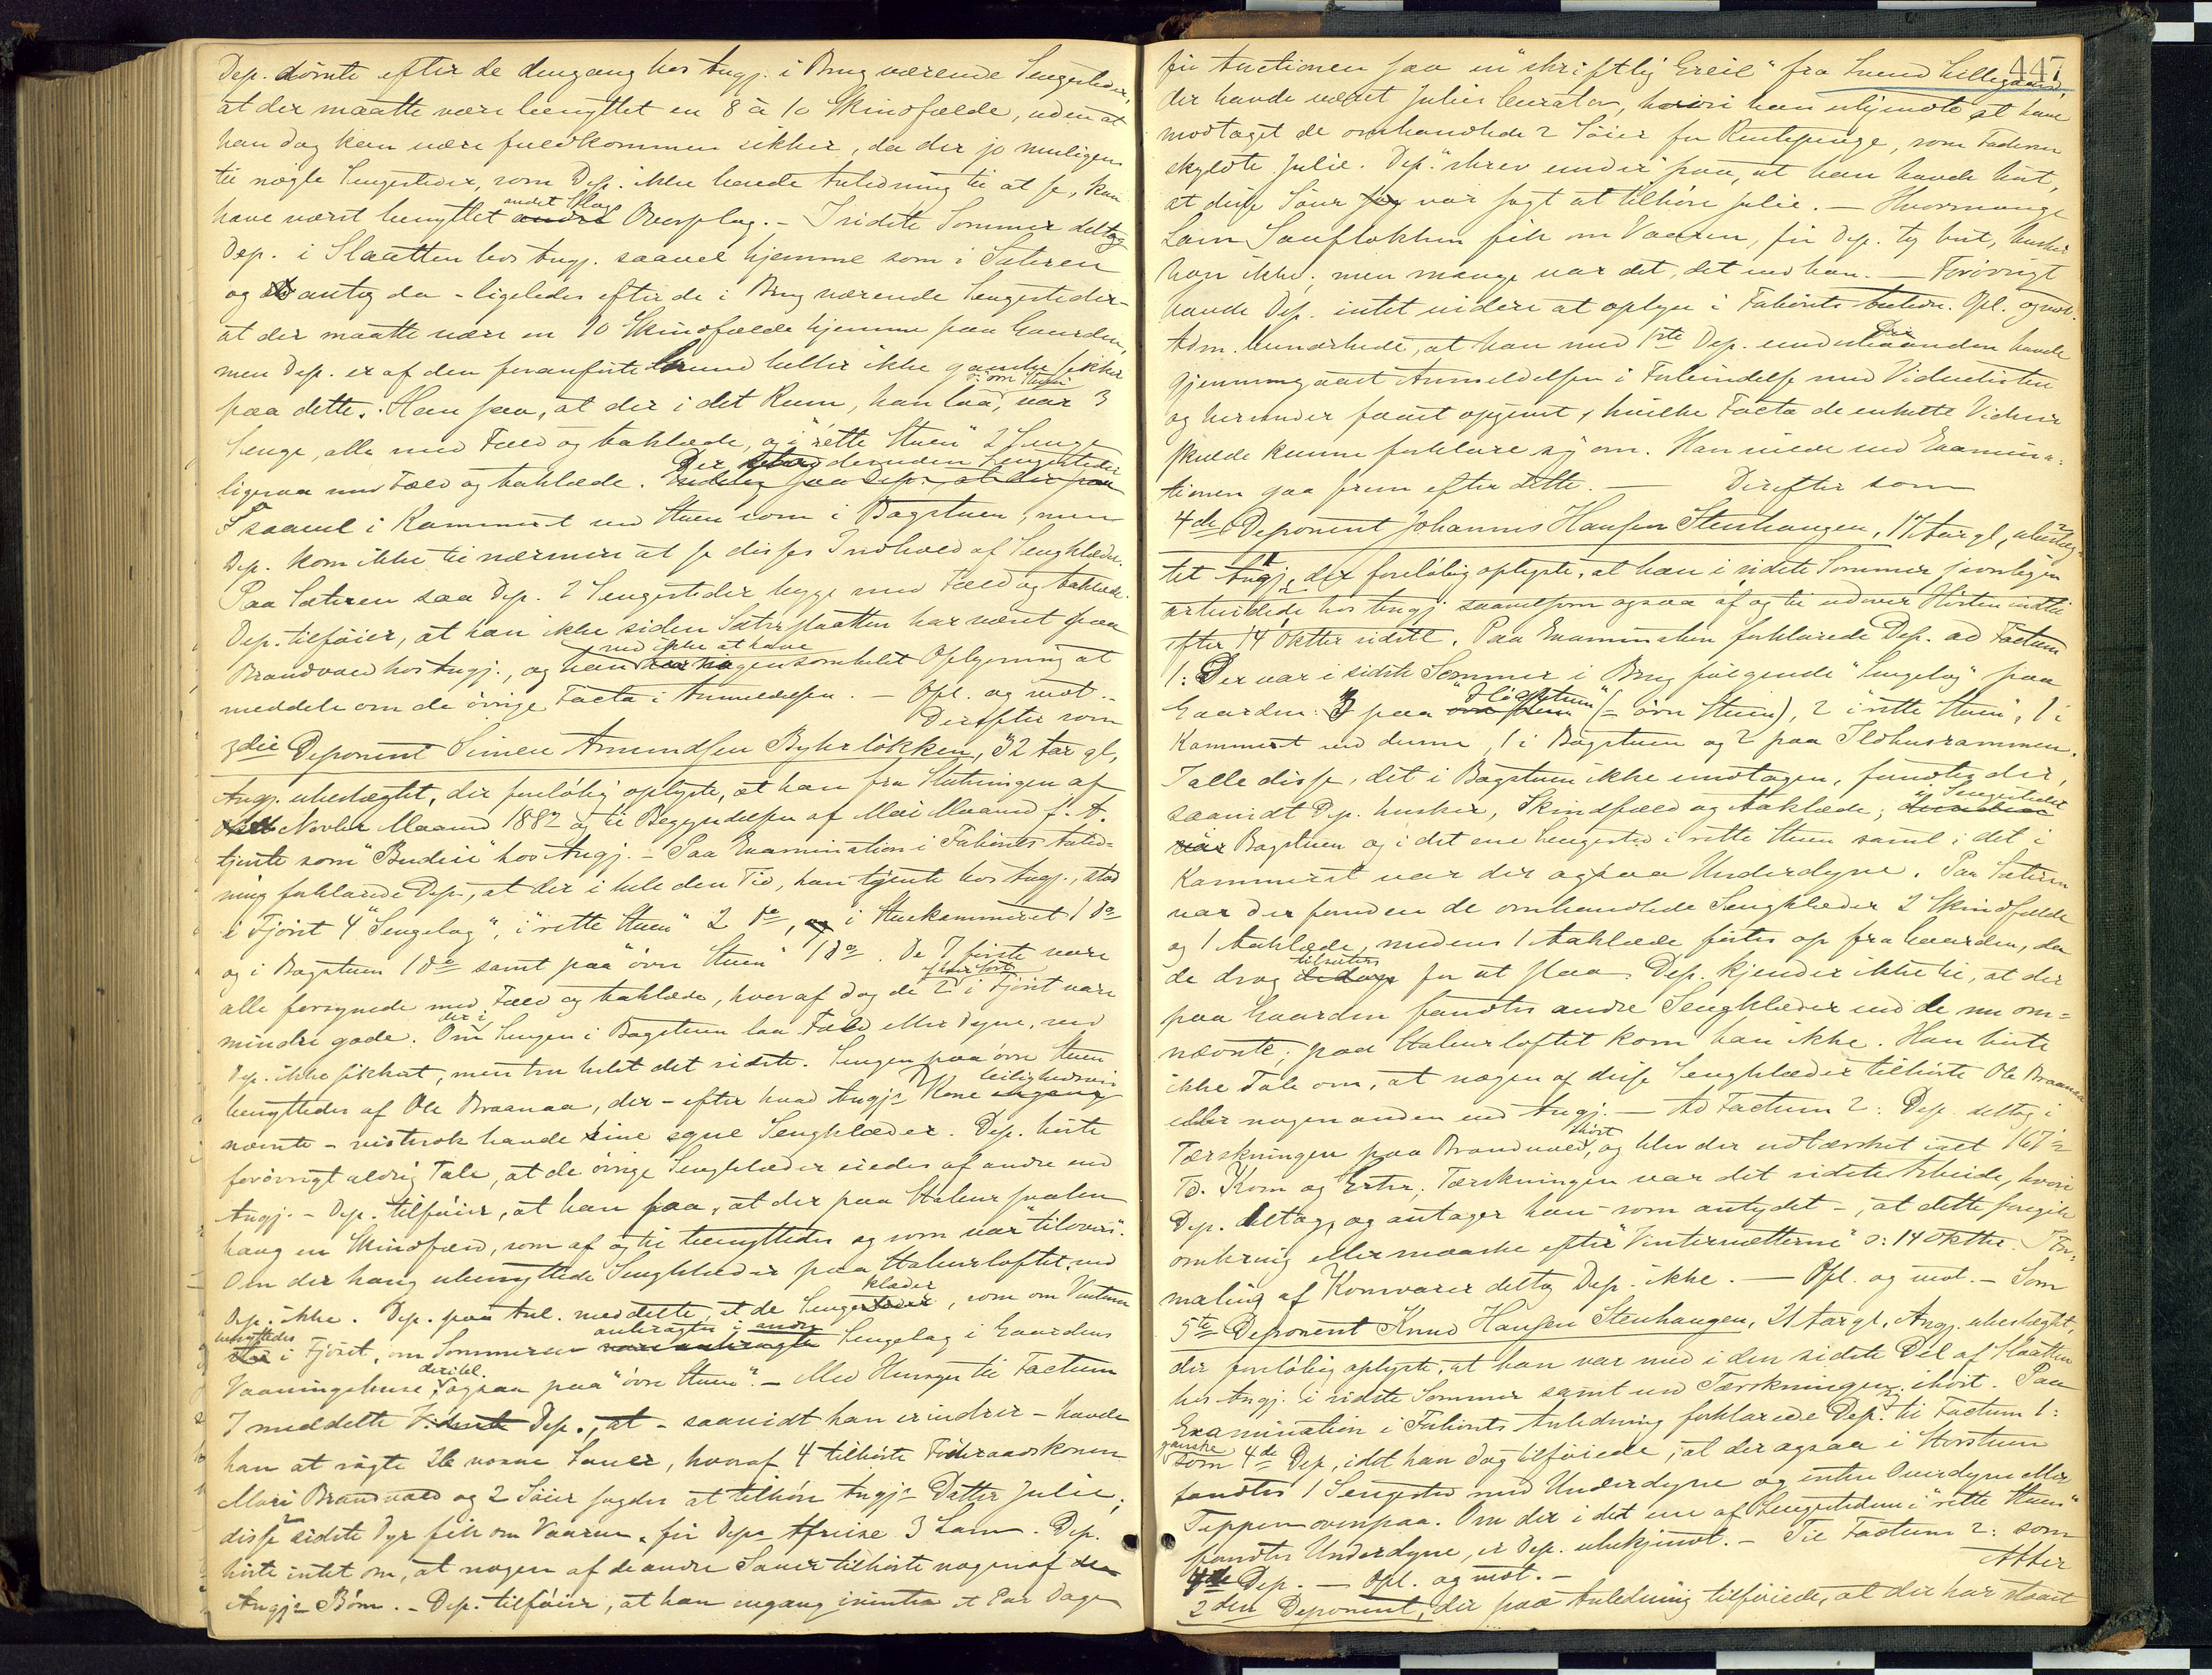 Dep. dömte efter de dengang hos Angj. i Brug værende Sengesteder,
at der maatte være benyttet en 8 à 10 Skindfælde, uden at
han dog kan være fuldkommen sikker, da der jo muligens
til nogle Sengesteder, som Dep. ikke havde Anledning til at se, kan
have været benyttet andet Slags Overplag. – I sidste Sommer deltog
Dep. i Slaatten hos Angj. saavel hjemme som i Sæteren
og antog da – ligeledes efter de i Brug værende Sengesteder –
at der maatte være en 10 Skindfælde hjemme paa Gaarden,
men Dep. er af den foranførte Grund heller ikke ganske sikker
paa dette. Han saa, at der i det Rum, han laa, var 3
Senge, alle med Fæld og Aaklæde, og i "rette Stuen" 2 Senge
ligesaa med Fæld og Aaklæde. Der stod desuden Sengesteder
saavel i Kammeret ved Stuen som i Bagstuen, men
Dep. kom ikke til nærmere at se disses Indhold af Sengklæder.
Paa Sæteren saa Dep. 2 Sengesteder begge med Fæld og Aaklæde.
Dep. tilføier, at han ikke siden Sæterslaatten har været paa
Brandvold hos Angj., og ved ikke at have nogensomhelst Oplysning at
meddele om de övrige Facta i Anmeldelsen. – Opl. og vedt. –
Derefter som
3die Deponent Simen Amundsen Byhrløkken, 32 Aar gl,
Angj. ubeslægtet, der foreløbig oplyste, at han fra Slutningen af
Novbr Maaned 1882 og til Begyndelsen af Mai Maaned f. A.
tjente som "Budeie" hos Angj. – Paa Examination i Faktiones Anled-
ning forklarede Dep., at der i hele den Tid, han tjente hos Angj., stod
i Fjöset 4 "Sengelag", i "rette Stuen" 2 do, i Stuekammeret 1 do
og i Bagstuen 1 do samt paa "övre Stuen" 1 do. De 7 første vare
alle forsynede med Fæld og Aaklæde, hvoraf dog de 2 i Fjöset vare
mindre gode. Om der i Sengen i Bagstuen laa Fæld eller Dyne, ved
Dep. ikke sikkert, men tror helst det sidste. Sengen paa övre Stuen
benyttedes af Ole Braanaa, der – efter hvad Angj.s Kone leilighedsvis
nævnte – visstnok havde sine egne Sengklæder. Dep. hørte
forövrigt aldrig Tale, at de övrige Sengklæder eiedes af andre end
Angj. – Dep. tilføier, at han saa, at der paa Stabursvalen
hang en Skindfæld, som af og til benyttedes og som var "tilovers".
Om der hang ubenyttede Sengklæder paa Stabursloftet, ved
Dep. ikke. Dep. paa Anl. meddelte, at de Sengeklæder, som om Vinteren
benyttedes i Fjöset, om Sommeren anbragtes i andre Sengelag i Gaardens
Vaaningshuse, deribl. ogsaa paa "övre Stuen". – Med Hensyn til Factum
7 meddelte Dep., at – saavidt han erindrer – havde
han at røgte 26 voxne Sauer, hvoraf 4 tilhørte Föderaadskonen
Mari Brandvold og 2 Söier sagdes at tilhøre Angj.s Datter Julie;
disse sidste Dyr fik om Vaaren, før Deps Afreise 3 Lam. Dep.
hørte intet om, at nogen af de andre Sauer tilhørte nogen af
Angj.s Børn. – Dep. tilføier, at han engang iminutes et Par Dage
447
før Auctionen saa en "skriftlig Greie" fra Svend Lillegaard,
der havde været Julies Curator, hvori han erkjendte at have
modtaget de omhandlede 2 Söier for Rentepenge, som Faderen
skyldte Julie. Dep. "skrev under" paa, at han havde hørt,
at disse Söier var sagt at tilhøre Julie. – Hvormange
Lam Saueflokken fik om Vaaren, før Dep. tog bort, husker
han ikke; men mange var det, det ved han. – Forövrigt
havde Dep. intet videre at oplyse i Faktiones Anledn. Opl. og vedt.
Adm. bemærkede, at han med 1ste Dep. underhaanden havde
gjennemgaaet Anmeldelsen i Forbindelse med Vidnelisten
og herunder faaet opgivet, hvilke Facta de enkelte Vidner
skulde kunne forklare sig om. Han vilde ved Examina-
tionen gaa frem efter dette. – Derefter som
4de Deponent Johannes Hansen Stenhaugen, 17 Aar gl, ubeslæg-
tet Angj, der foreløbig oplyste, at han i sidste Sommer jevnligen
arbeidede hos Angj. saavelsom ogsaa af og til udover Høsten indtil
efter 14 Oktbr sidstl. Paa Examination forklarede Dep. ad Factum
1: Der var i sidste Sommer i Brug følgende "Sengelag" paa
Gaarden: 3 paa "Højstuen" (= övre Stuen), 2 i "rette Stuen", 1 i
Kammeret ved denne, 1 i Bagstuen og 2 paa Ildhusrammen.
I alle disse, det i Bagstuen ikke undtagen, fandtes der,
saavidt Dep. husker, Skindfæld og Aaklæde; Sengestedet
Bagstuen og i det ene Sengested i rette Stuen samt i det i
Kammeret var der ogsaa Underdyne. Paa Sæteren
var der foruden de omhandlede Sengklæder 2 Skindfælde
og 1 Aaklæde, medens 1 Aaklæde førtes op fra Gaarden, da
de drog tilsæters for at slaa. Dep. kjender ikke til, at der
paa Gaarden fandtes andre Sengklæder end de nu om-
nævnte; paa Stabursloftet kom han ikke. Han hørte
ikke Tale om, at nogen af disse Sengklæder tilhørte Ole Braanaa
eller nogen anden end Angj. – Ad Factum 2: Dep. deltog i
Tærskningen paa Brandvold ihöst, og blev der udtærsket ialt 167½
Td. Korn og Erter; Tærskningen var det sidste Arbeide, hvori
Dep. deltog, og antager han – som antydet –, at dette foregik
omkring eller maaske efter "Vinternætterne" ɔ: 14 Oktbr. I For-
maling af Kornvarer deltog Dep. ikke. – Opl. og vedt. – Som
5te Deponent Knud Hansen Stenhaugen, 21 Aar gl, Angj. ubeslægtet,
der foreløbig oplyste, at han var med i den sidste Del af Slaatten
hos Angj. i sidste Sommer samt ved Tærskningen ihöst. Paa
Examination i Faktiones Anledning forklarede Dep. til Factum 1:
ganske som 4de Dep, idet han dog tilføiede, at der ogsaa i Storstuen
fandtes 1 Sengested med Underdyne og enten Overdyne eller
Teppen ovenpaa. Om der i det ene af Sengestederne i "rette Stuen"
fandtes Underdyne, er Dep. ubekjendt. – Til Factum 2: som
4de Dep. – Opl. og vedt. – Atter
2den Deponent, der paa Anledning tilføiede, at der har staaet